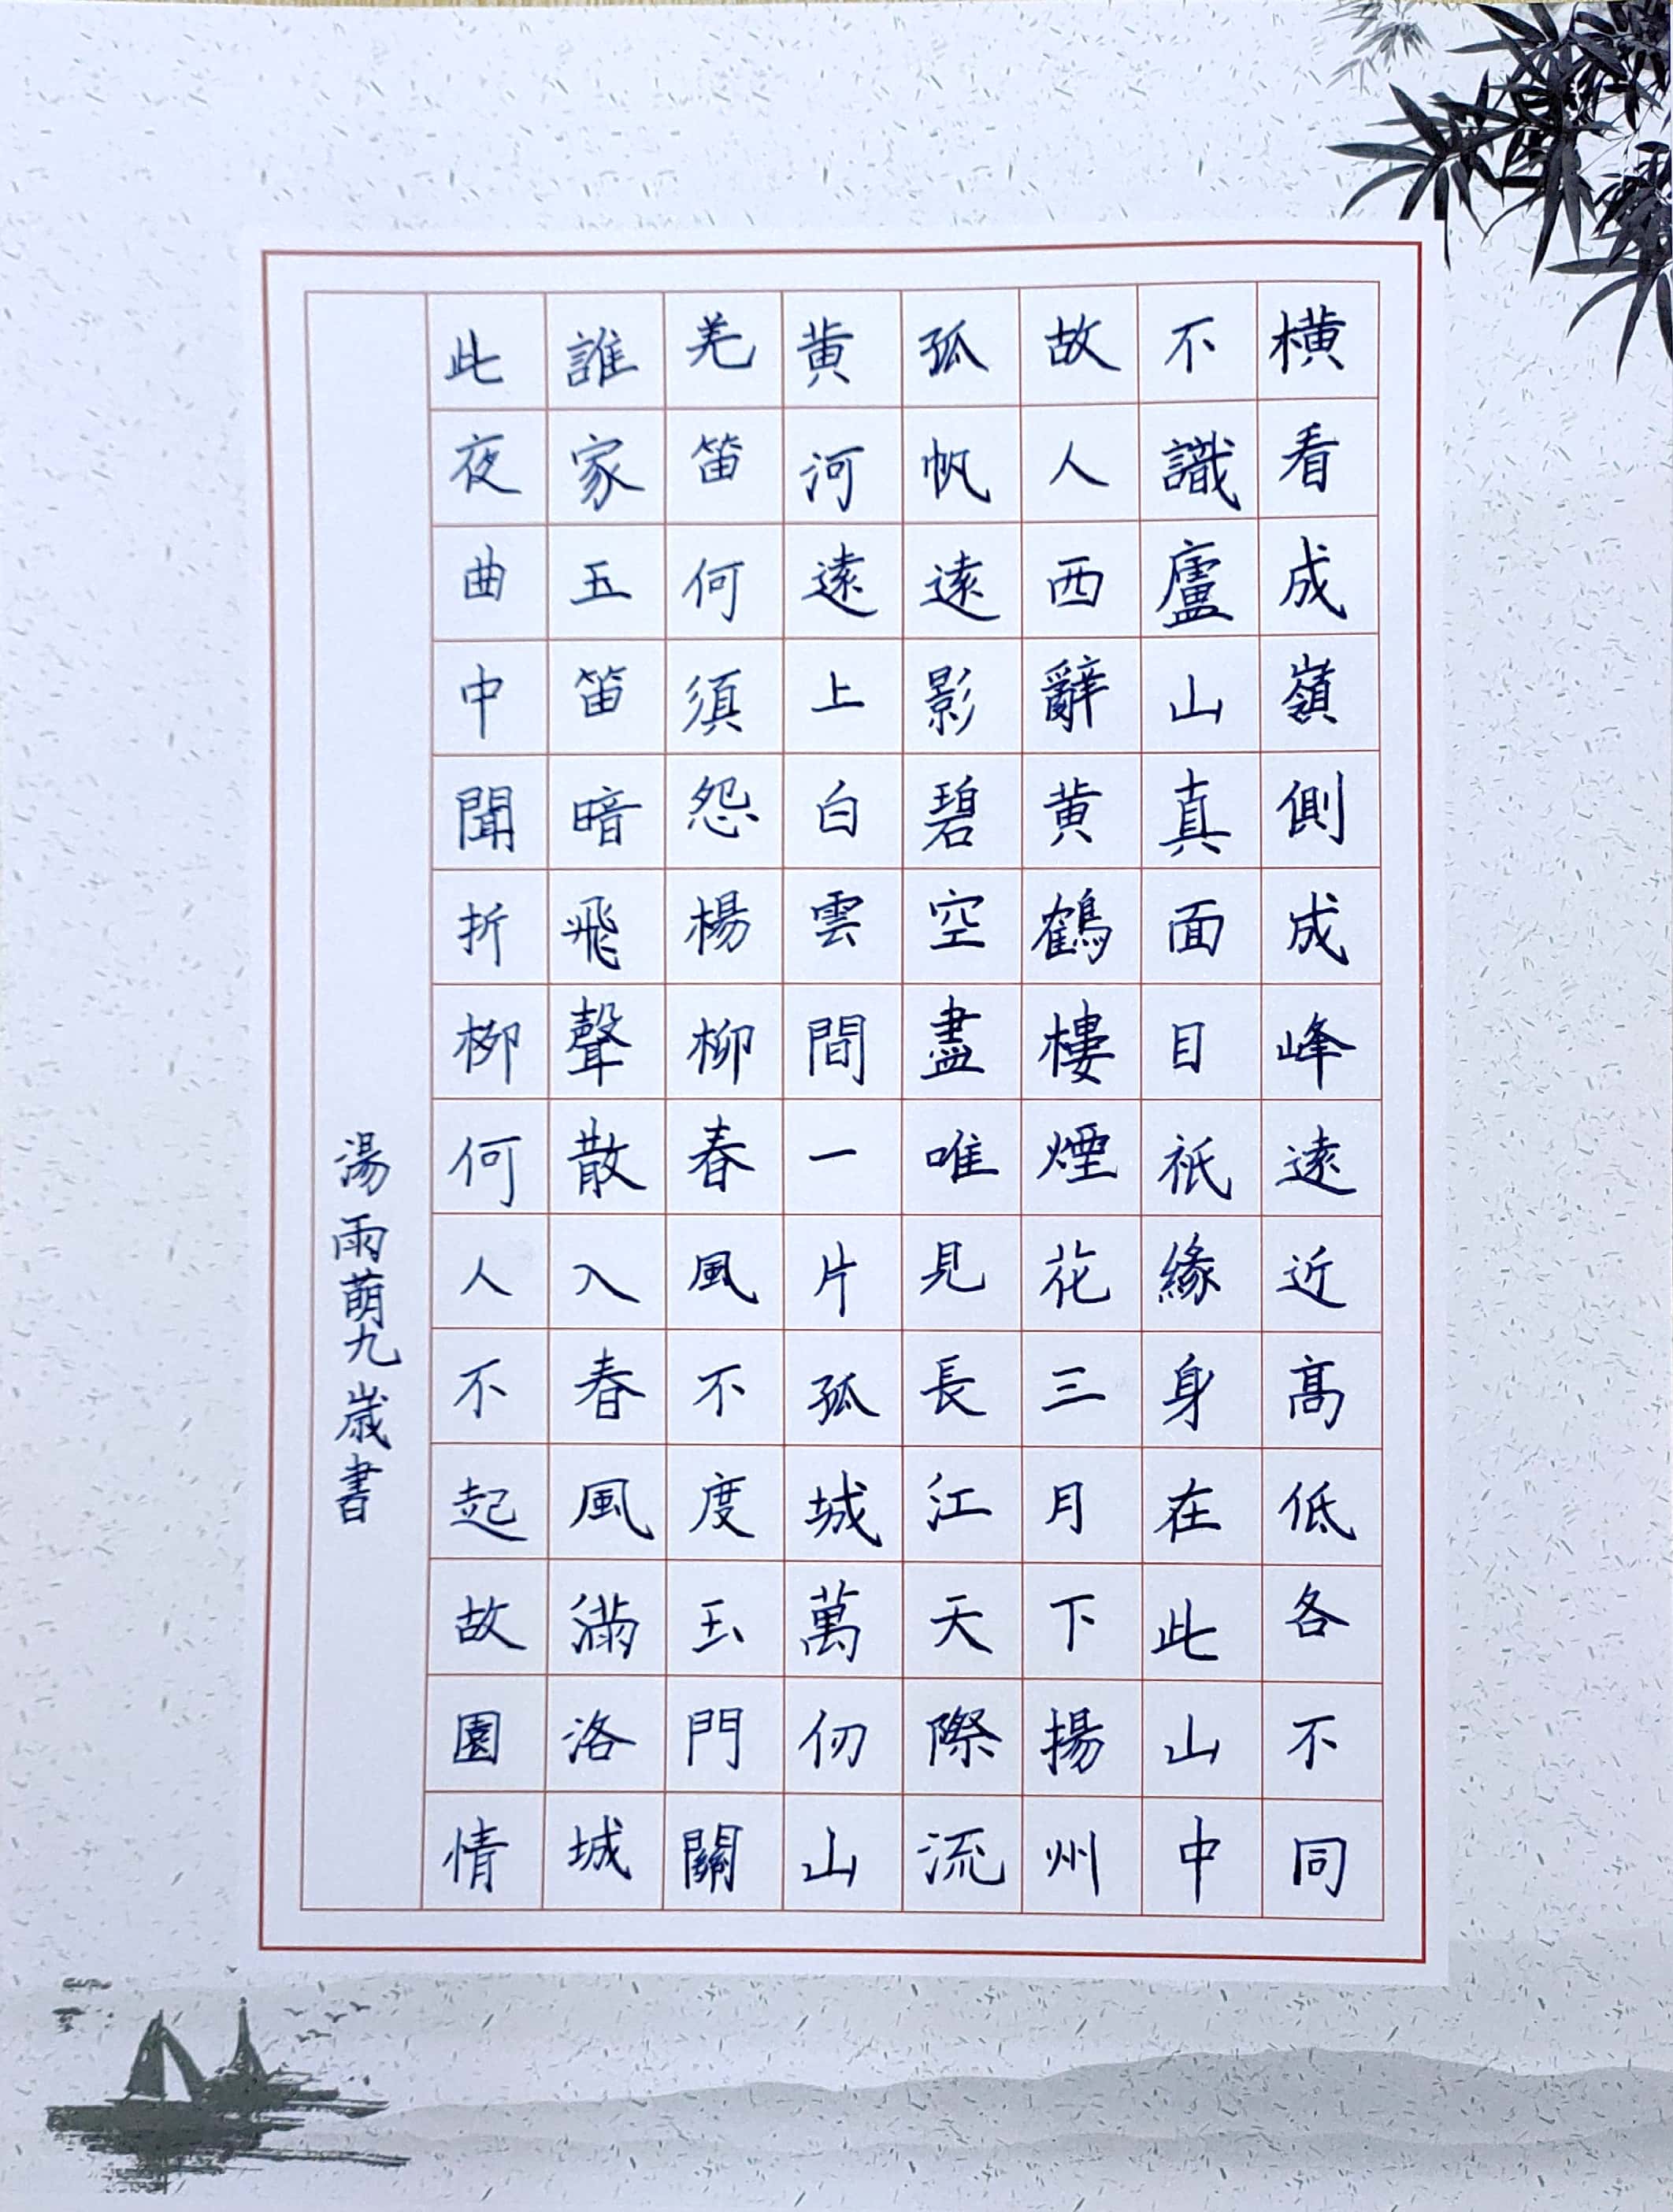 橫看成嶺側成峰遠近高低各不同
不識廬山真面目祇緣身在此山中
故人西辭黃鶴樓煙花三月下揚州
孤帆遠影碧空盡唯見長江天際流
黃河遠上白雲間一片孤城萬仞山
羌笛何須怨楊柳春風不度玉門關
誰家玉笛暗飛聲散入春風滿洛城
此夜曲中聞折柳何人不起故園情
湯雨萌九歲書